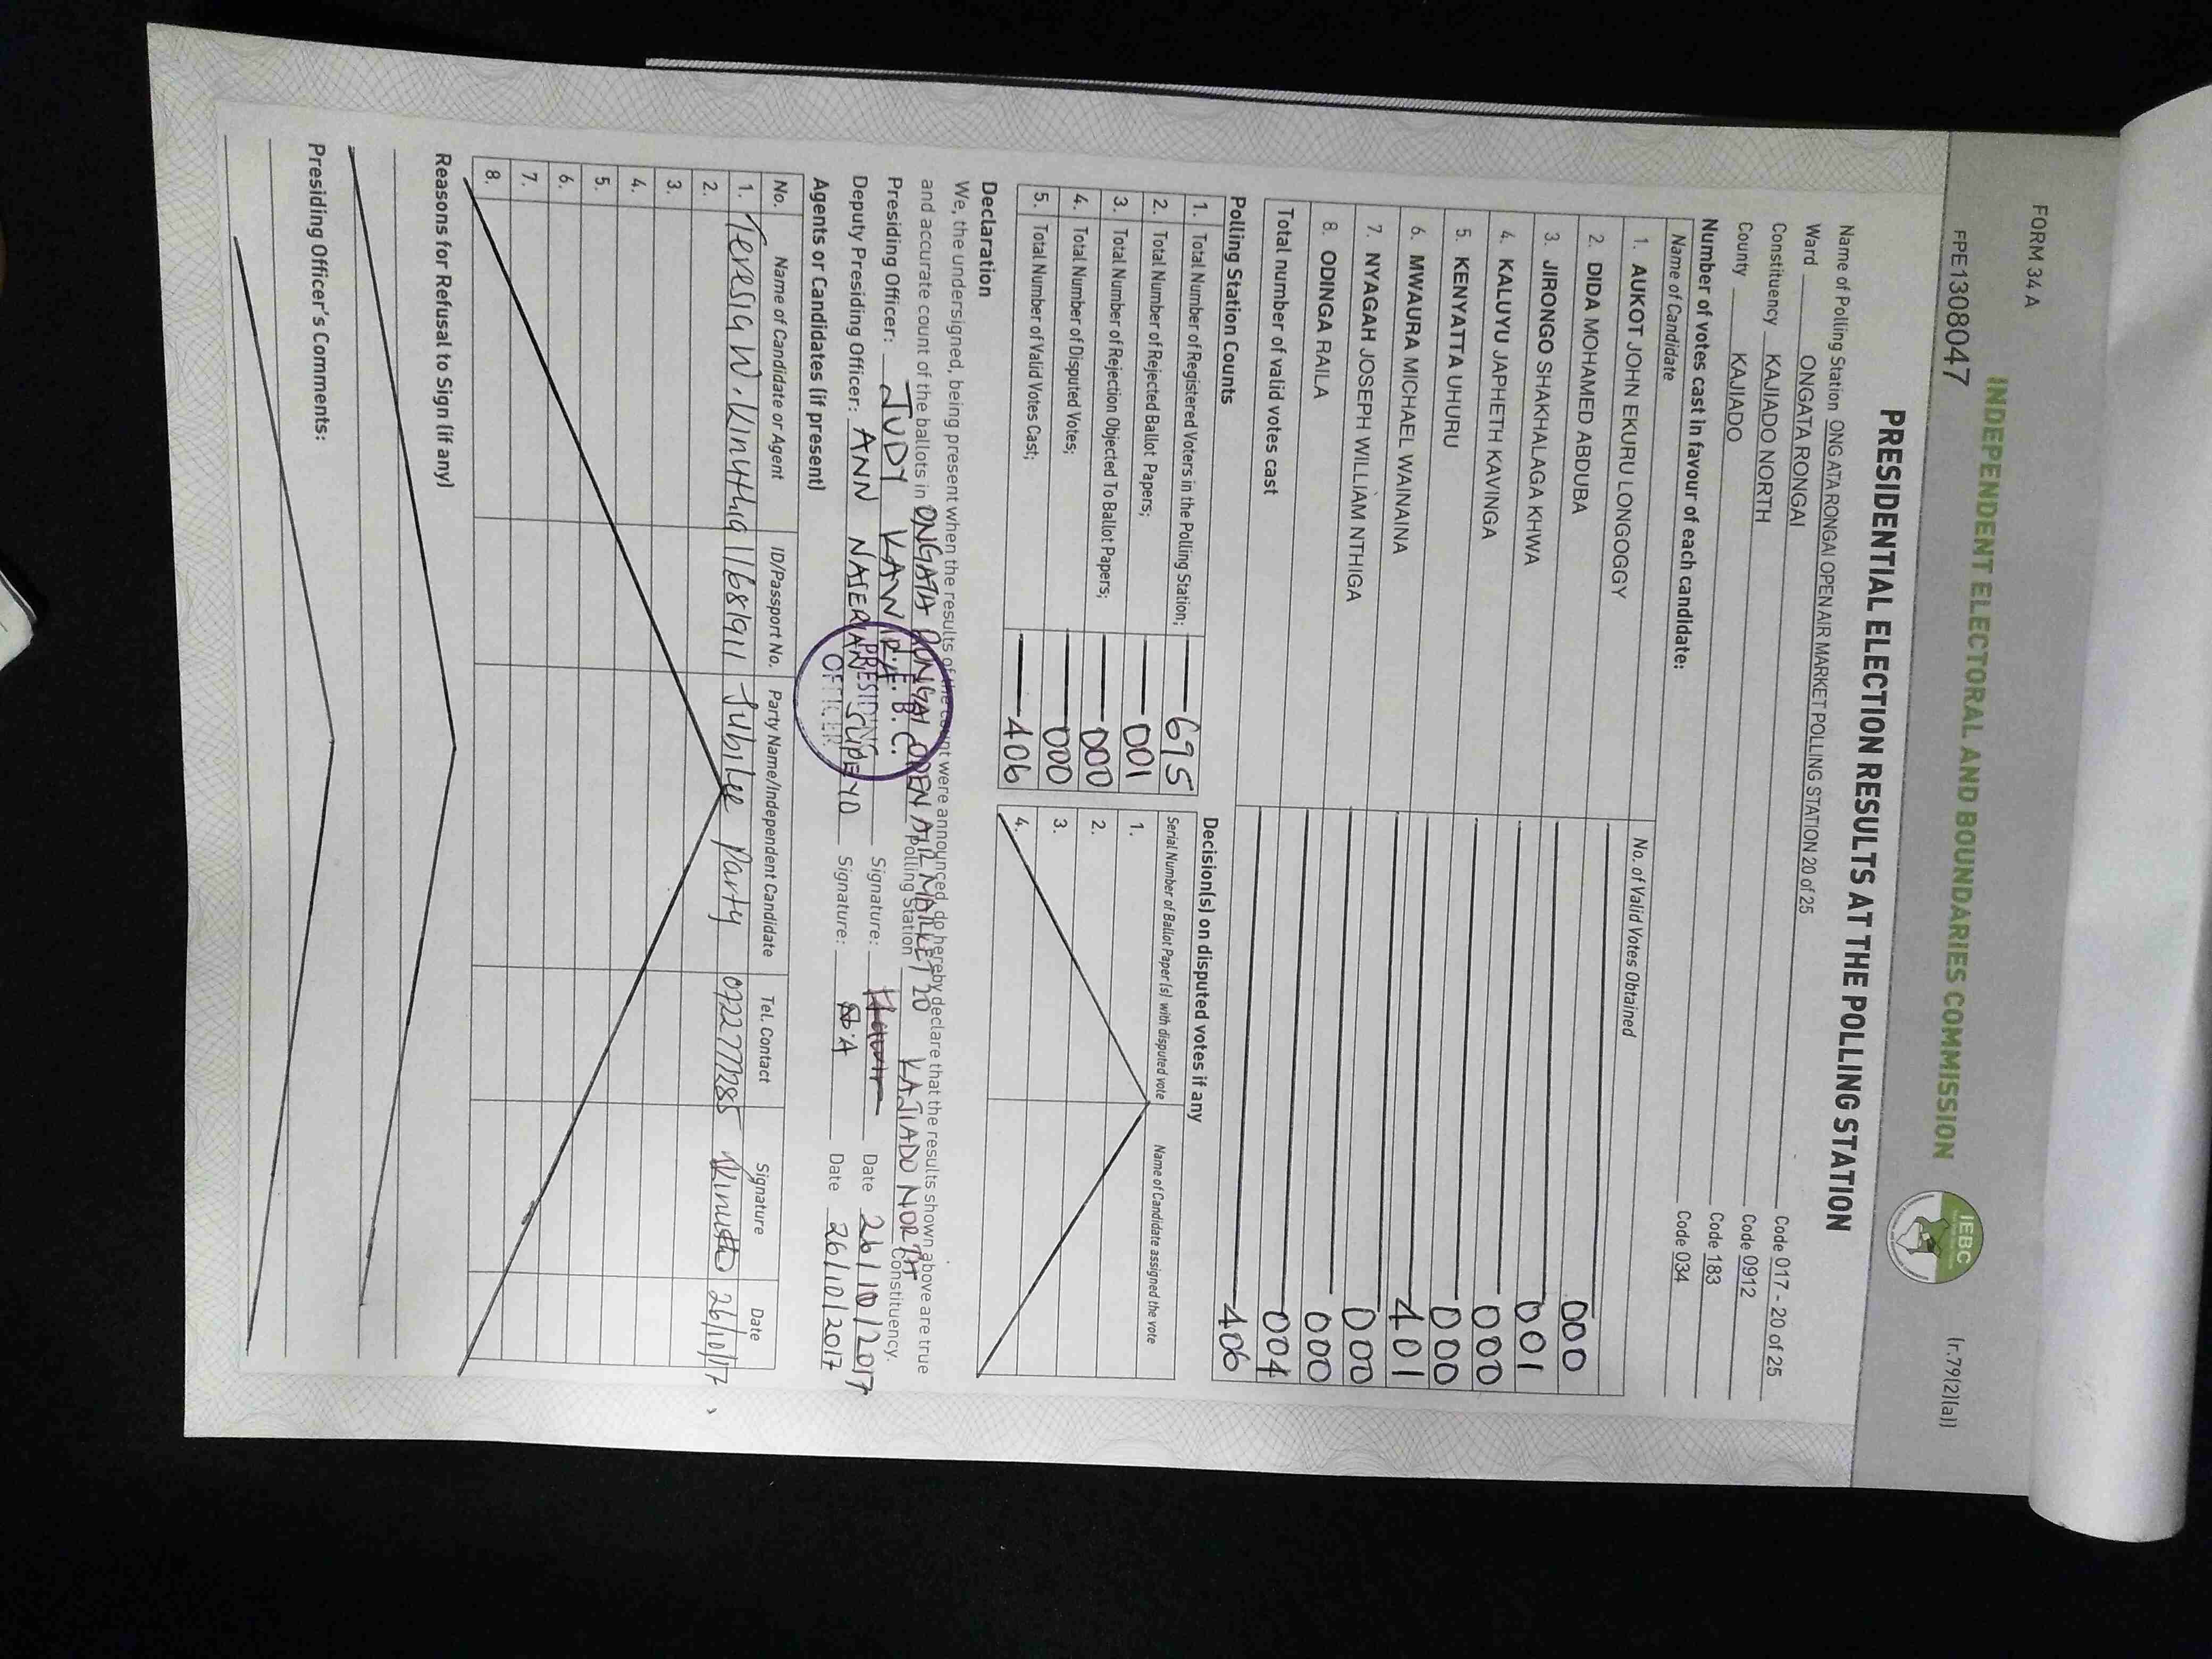 FORM 34 A
(r.79(2)(a))
FPE1308047
INDEPENDENT ELECTORAL AND BOUNDARIES COMMISSION
IEBC
PRESIDENTIAL ELECTION RESULTS AT THE POLLING STATION
Name of Polling Station ONGATA RONGAI OPEN AIR MARKET POLLING STATION 20 of 25 Code 017 - 20 of 25
Ward ONGATA RONGAI Code 0912
Constituency KAJIADO NORTH Code 183
County KAJIADO Code 034
Number of votes cast in favour of each candidate:
Name of Candidate No. of Valid Votes Obtained
1. AUKOT JOHN EKURU LONGOGGY 000
2. DIDA MOHAMED ABDUBA 001
3. JIRONGO SHAKHALAGA KHWA 000
4. KALUYU JAPHETH KAVINGA 000
5. KENYATTA UHURU 401
6. MWAURA MICHAEL WAINAINA 000
7. NYAGAH JOSEPH WILLIAM NTHIGA 000
8. ODINGA RAILA 004
Total number of valid votes cast 406
Polling Station Counts
1. Total Number of Registered Voters in the Polling Station; 695
2. Total Number of Rejected Ballot Papers; 001
3. Total Number of Rejection Objected To Ballot Papers; 000
4. Total Number of Disputed Votes; 000
5. Total Number of Valid Votes Cast; 406
Decision(s) on disputed votes if any
Serial Number of Ballot Paper(s) with disputed vote Name of Candidate assigned the vote
1.
2.
3.
4.
Declaration
We, the undersigned, being present when the results of the count were announced, do hereby declare that the results shown above are true
and accurate count of the ballots in ONGATA RONGAI OPEN AIR MARKET 20 Polling Station KAJIADO NORTH Constituency.
Presiding Officer: JUDY KAWIRA Signature: Date 26/10/2017
Deputy Presiding Officer: ANN NASERIAN Signature: Date 26/10/2017
I.E.B.C.
PRESIDING
OFFICER
Agents or Candidates (if present)
No. Name of Candidate or Agent ID/Passport No. Party Name/Independent Candidate Tel. Contact Signature Date
1. Teresia W. Kinuthia 11681911 Jubilee Party 0722777285 26/10/17
2.
3.
4.
5.
6.
7.
8.
Reasons for Refusal to Sign (if any)
Presiding Officer's Comments: